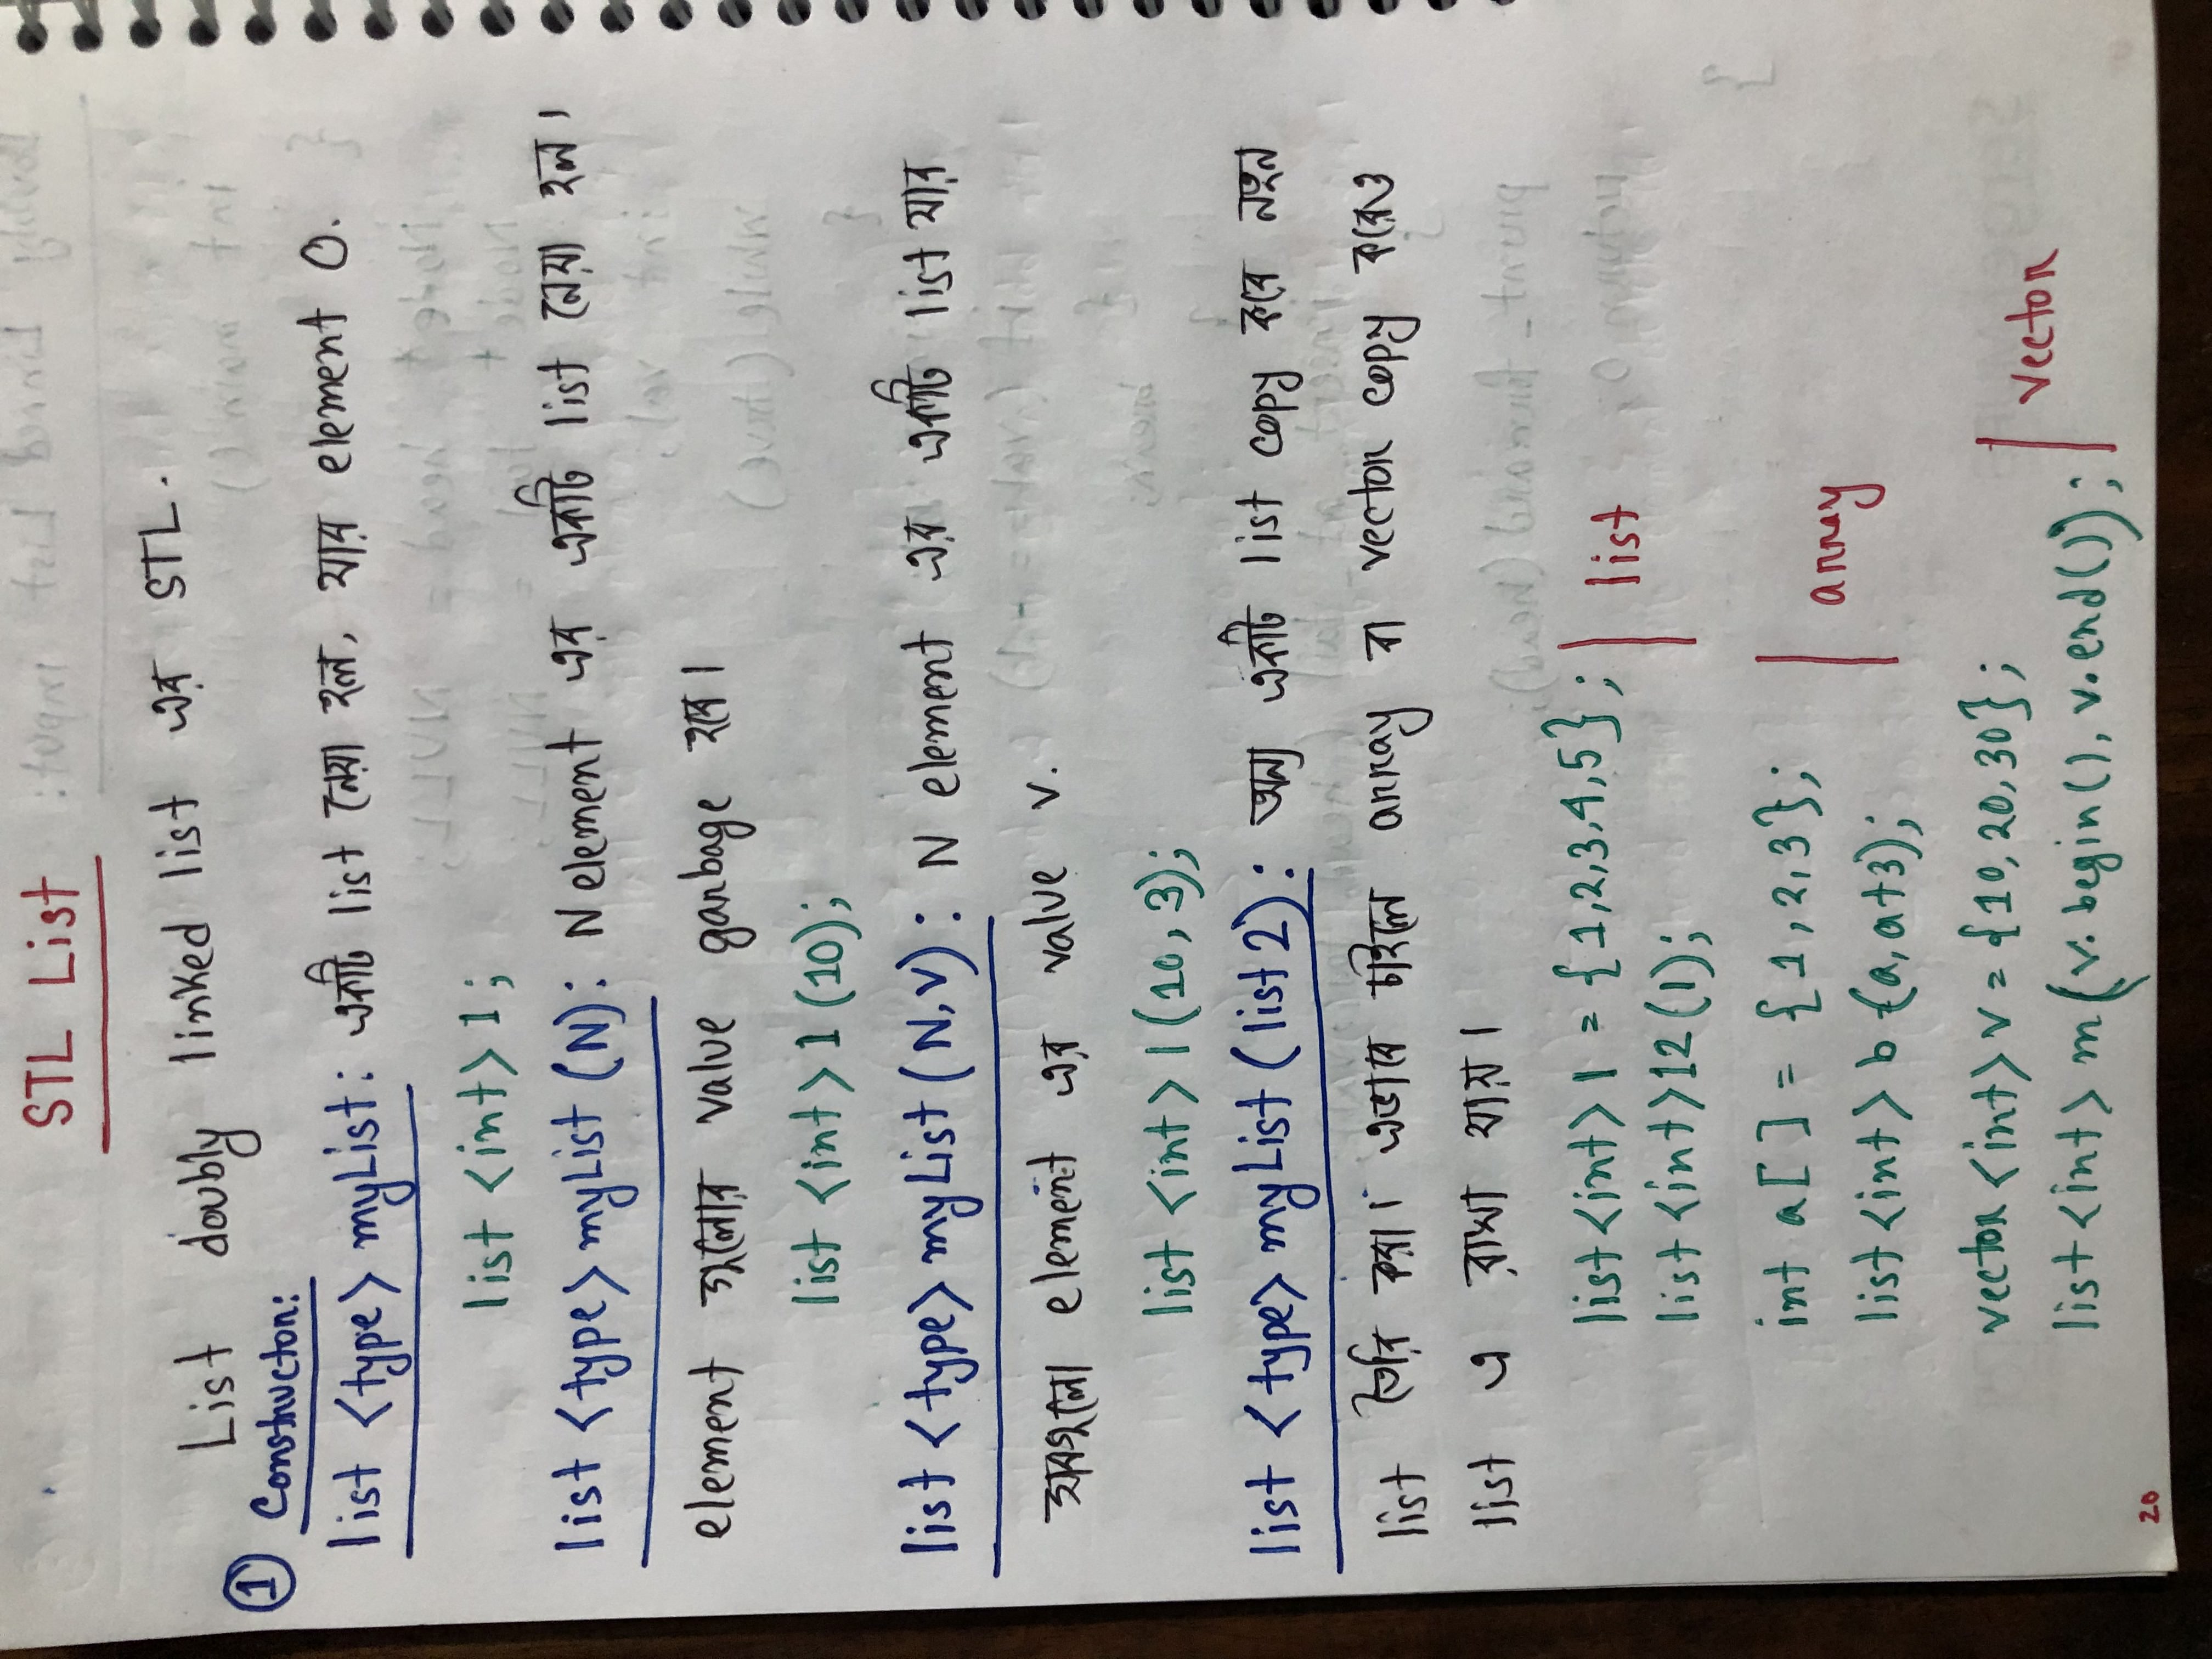 STL List
List doubly linked list এর STL.
1 Constructor:
list <type> myList: একটি list নেয়া হল, যার element 0.
list <int> l;
list <type> myList (N): N element এর একটি list নেয়া হল।
element গুলোর value garbage হবে।
list <int> l (10);
list <type> myList (N,V): N element এর একটি list যার
সবগুলো element এর value v.
list <int> l (10, 3);
list <type> myList (list2): অন্য একটি list copy করে নতুন
list তৈরি করা। এভাবে চাইলে array বা vector copy করেও
list এ রাখা যায়।
list <int> l = {1,2,3,4,5}; list
list <int> l2 (l);
int a[ ] = {1,2,3}; array
list <int> b (a, a+3);
vector <int> v = {10,20,30}; vector
list <int> m (v.begin(), v.end());
20